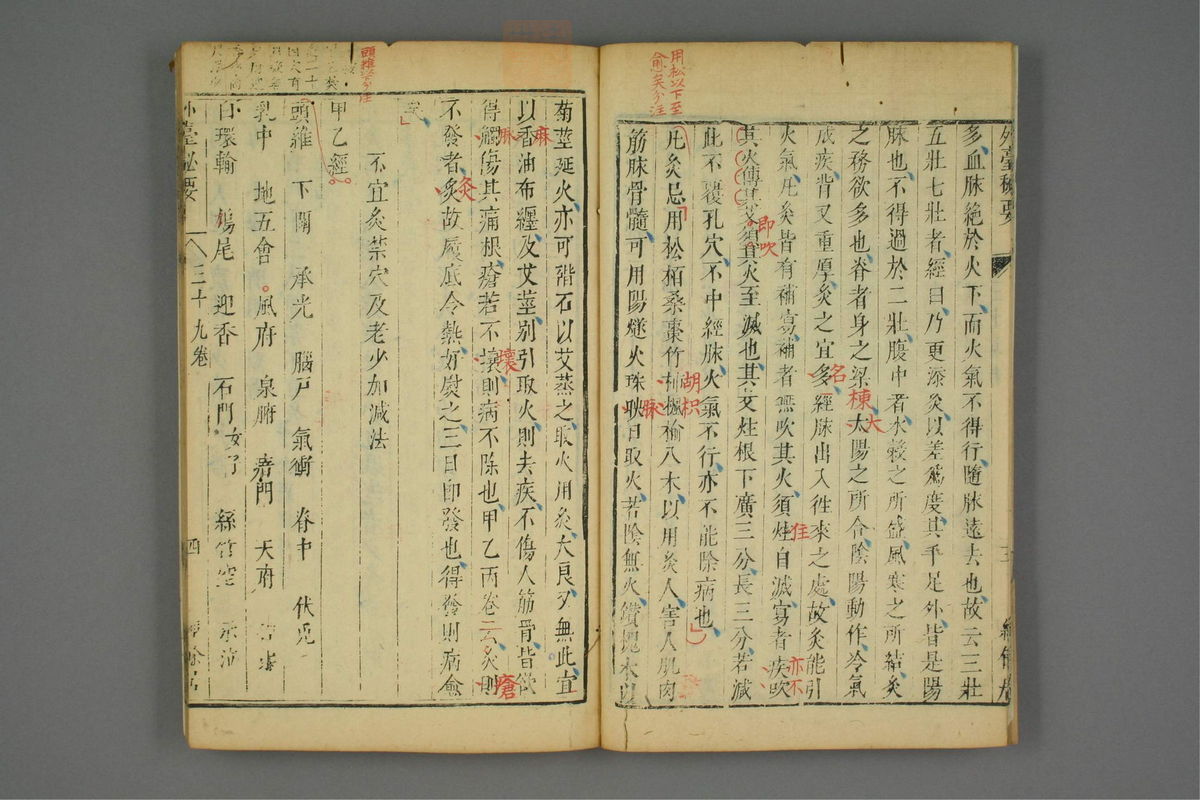 用松以下至
愈矣分注
外臺秘要
多血脉絶於火下而火氣不得行隨脉遠去也故云三壯
五壯七壯者經曰乃更添灸以差爲度其手足外皆是陽
脉也不得過於二壯腹中者水穀之所盛風寒之所結灸
之務欲多也脊者身之梁太陽之所合陰陽動作冷氣
棟
大
成疾背又重厚灸之宜多經脉出入徃來之處故灸能引
名
火氣凡灸皆有補寫補者無吹其火須炷自滅寫者疾吹
住
亦不
其火傳其艾須其火至滅也其艾炷根下廣三分長三分若減
即吹
此不覆孔穴不中經脉火氣不行亦不能除病也
凡灸忌用松栢桑棗竹楓榆八木以用灸人害人肌肉
胡枳
脉
筋脉骨髓可用陽燧火珠映日取火若陰無火鑽槐木以
菊莖延火亦可硞石以艾蒸之取火用灸大良又無此宜
以香油布纏及艾莖别引取火則去疾不傷人筋骨皆欲
麻
得觸傷其痛根瘡若不攘則病不除也甲乙丙卷云灸則
脉
壞
瘡
不發者炙故履底令熱好熨之三日即發也得發則病愈
灸
矣
不宜灸禁穴及老少加減法
頭維等分注
甲乙經
頭維 下關 承光 腦戸 氣衝 脊中 伏兎
乳中 地五會 風府 泉腑 瘖門 天府
白環輸 鳩尾 迎香 石門女子 絲竹空 承泣
外臺秘要
三十九卷
四
經餘居